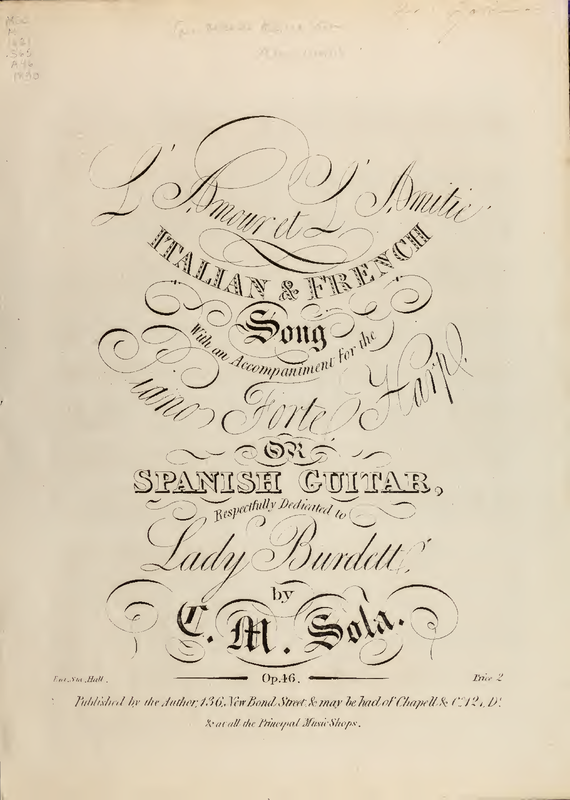 L'Amour et L'Amitié
ITALIAN & FRENCH
Song
With an Accompaniment for the
Piano Forte Harp
OR
SPANISH GUITAR,
Respectfully Dedicated to
Lady Burdett
by
C. M. Sola.
Op.46.
Ent. Sta. Hall.
Price 2
Published by the Author, 136, New Bond Street, & may be had of Chapell & Co. 124, Do.
& at all the Principal Music Shops.